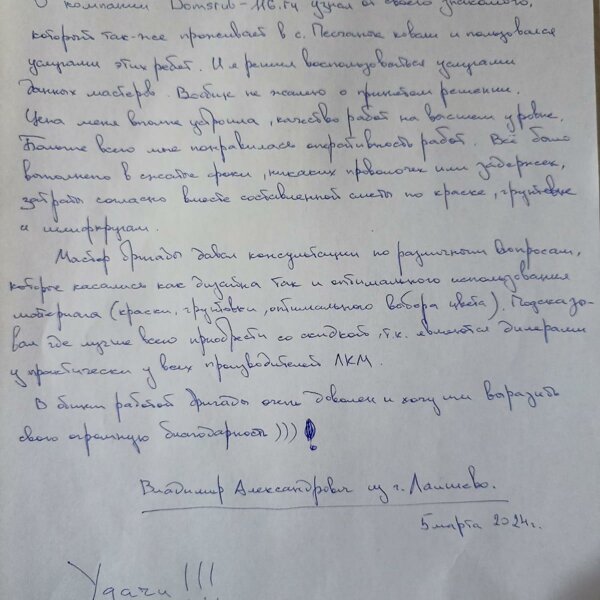 О компании Domsrub-116.ru узнал от своего знакомого,
который так-же проживает в с. Песчаные ковали и пользовался
услугами этих ребят. И я решил воспользоваться услугами
данных мастеров. Вообще не жалею о принятом решении.
Цена меня вполне устроила, качество работ на высшем уровне.
Больше всего мне понравилась оперативность работ. Всё было
выполнено в сжатые сроки, никаких проволочек или задержек,
затраты согласно вместе составленной сметы по краске, грунтовке
и шлифкругам.
Мастер бригады давал консультации по различным вопросам,
которые касались как дизайна так и оптимального использования
материала (краски, грунтовки, оптимального выбора цвета). Подсказы-
вал где лучше всего приобрести со скидкой, т.к. являются дилерами
у практически у всех производителей ЛКМ.
В общем работой бригады очень доволен и хочу им выразить
свою огромную благодарность )))!
Владимир Александрович из г. Лаишево.
5 марта 2024г.
Удачи!!!